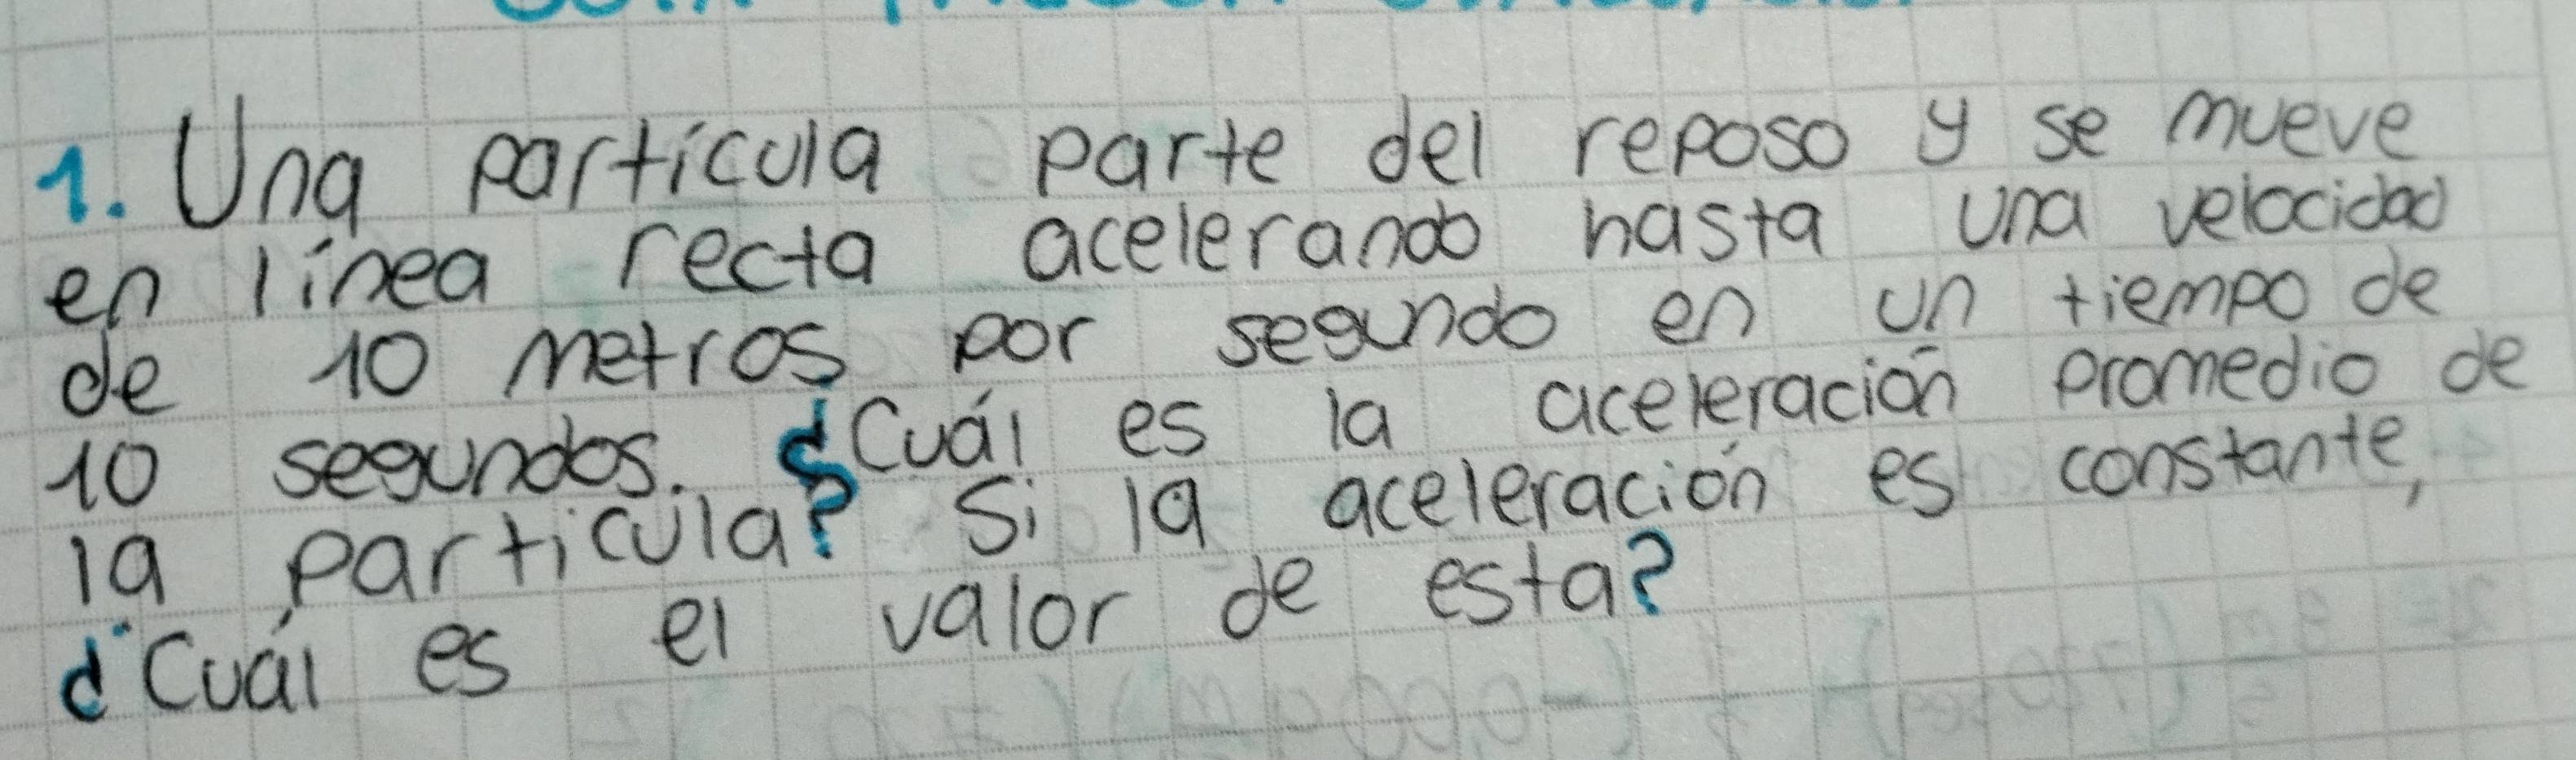 1. Una partícula parte del reposo y se mueve
en línea recta acelerando hasta una velocidad
de 10 metros por segundo en un tiempo de
10 segundos. ¿Cuál es la aceleración promedio de
la particula? Si la aceleración es constante,
¿Cuál es el valor de esta?